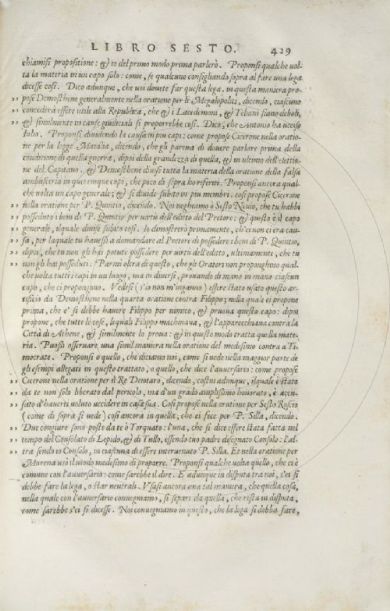 LIBRO SESTO. 429
chiamisi propositione: & io del primo modo prima parlerò. Proponsi qualche vol
ta la materia in un capo solo: come, se qualcuno consigliando sopra al fare una lega
dicesse cosi. Dico adunque, che sia dovere far questa lega. in questa maniera pro
pose Demosthene generalmente nella oratione per li Megalopoliti, dicendo, ciascuno
concederà essere utile alla Republica, che i Lacedemoni, & i Thebani siano deboli,
& similmente in cause giudiciali si proporrebbe cosi. Dico, che Antonio ha ucciso
Proponsi dividendo la causa in piu capi: come propose Cicerone nella oratio-
ne per la legge Manilia, dicendo, che gli pareva di dovere parlare prima della
conditione di quella guerra, dipoi della grandezza di quella, & in ultimo dell'elettio-
ne del Capitano. & Demosthene divise tutta la materia della oratione della falsa
ambasceria in quei cinque capi, che poco di sopra ho riferiti. Proponsi ancora qual
che volta un capo generale; & si divide subito in piu membri. cosi propose Cicerone
nella oratione per P. Quintio, dicendo. Noi neghiamo ò Sesto Nevio, che tu habbi
posseduto i beni di P. Quintio per virtù dell'editto del Pretore: & questo è il capo
generale, ilquale divise subito cosi. Io demostrerò primamente, che ei non ci era cau-
sa, per laquale tu havessi a domandare al Pretore di possedere i beni di P. Quintio,
dipoi, che tu non gli hai potuti possedere per virtù dell'editto, ultimamente, che tu
non gli hai posseduti. Parmi oltra di questo, che gli Oratori non proponghino qual
che volta tutti i capi in un luogo, ma in diversi, provando di mano in mano ciascun
capo, che ei propongono. Vedesi (s'io non m'inganno) essere stato usato questo ar-
tificio da Demosthene nella quarta oratione contra Filippo; nella quale ei propone
prima, che e' si debbe havere Filippo per nimico, & pruova questo capo: dipoi
propone, che tutte le cose, lequali Filippo machinava, & l'apparecchiava contra la
Città di Athene, & similmente lo prova: & in questo modo tratta quella mate-
ria. Puossi osservare una simil maniera nella oratione del medesimo contra a Ti-
mocrate. Proponsi o quello, che diciamo noi, come si vede nella maggior parte de
gli esempi allegati in questo trattato, o quello, che dice l'aversario: come propose
Cicerone nella oratione per il Re Deiotaro, dicendo, costui adunque, ilquale è stato
da te non solo liberato dal pericolo, ma d'un grado amplissimo honorato, è accu-
sato d'haverti voluto uccidere in casa sua. Cosi propose nella oratione per Sesto Roscio
(come di sopra si vede) cosi ancora in quella, che ei fece per P. Silla, dicendo.
Due congiure sono poste da te ò Torquato: l'una, che si dice essere stata fatta nel
tempo del Consolato di Lepido, & di Tullo, essendo tuo padre designato Consolo: l'al
tra sendo io Consolo, in ciascuna di essere intervenuto P. Silla. Et nella oratione per
Murena usò il modo medesimo di proporre. Proponsi qualche volta quello, che ci è
comune con l'aversario: come sarebbe il dire. E adunque in disputa tra noi, s'ei si
debbe fare la lega, o star neutrali. Usasi ancora una tal maniera, che quella cosa,
nella quale con l'aversario convegniamo, si separi da quella, che resta in disputa,
come sarebbe s'ei si dicesse. Noi convegniamo in questo, che la lega si debba fare,